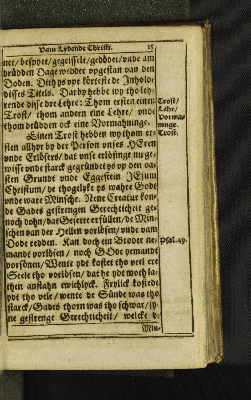 Vam Lydende Christi. 15
net/ bespyet/ gegeisselt/ gedödet/ vnde am
drüdden Dage wedder vpgestan van den
Doden. Dith ys vpt körteste de Inholdt
disses Titels. Darby hebbe wy tho leh-
rende disse dre Lehre: Thom ersten einen
Trost/ thom andern eine Lehre/ vnd
thom drüdden ock eine Vormahninge.
Einen Trost hebben wy thom er-
sten allhyr by der Person vnses HEren
vnde Erlösers/ dat vnse erlösinge nu ge-
wisse vnde starck gegründet ys vp den va-
sten Grundt vnde Eggestein JEsum
Christum/ de thogelyke ys wahre Godt
vnde ware Minsche. Nene Creatur kon-
de Gades gestrengen Gerechticheit ge-
noch dohn/ dat Gesette erfüllen/ de Min-
schen van der Hellen vorlösen/ vnde vam
Dode redden. Kan doch ein Broder ne-
mandt vorlösen/ noch GOde yemandt
vorsönen/ Wente ydt kostet tho veel ere
Seele tho vorlösen/ dat he ydt moth la-
then anstahn ewichlyck. Frylick kostede
ydt tho vele/ wente de Sünde was tho
starck/ Gades thorn was tho schwar/ sy-
ne gestrenge Gerechticheit/ welcke de
Min-
Trost/
Lehr/
Vorma-
ninge.
Trost.
Psal. 49.